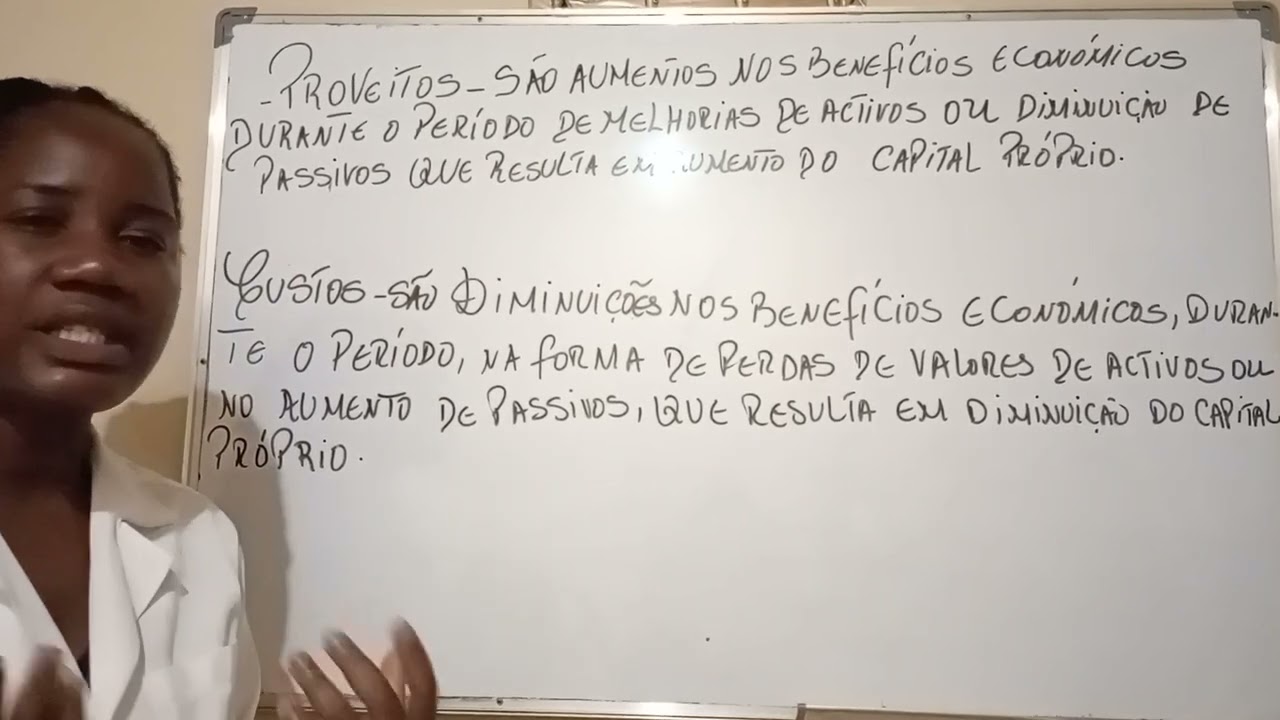 - PROVEITOS - SÃO AUMENTOS NOS BENEFÍCIOS ECONÓMICOS
DURANTE O PERÍODO DE MELHORIAS DE ACTIVOS OU DIMINUIÇÃO DE
PASSIVOS QUE RESULTA EM AUMENTO DO CAPITAL PRÓPRIO.
CUSTOS - SÃO DIMINUIÇÕES NOS BENEFÍCIOS ECONÓMICOS, DURAN-
TE O PERÍODO, NA FORMA DE PERDAS DE VALORES DE ACTIVOS OU
NO AUMENTO DE PASSIVOS, QUE RESULTA EM DIMINUIÇÃO DO CAPITAL
PRÓPRIO.